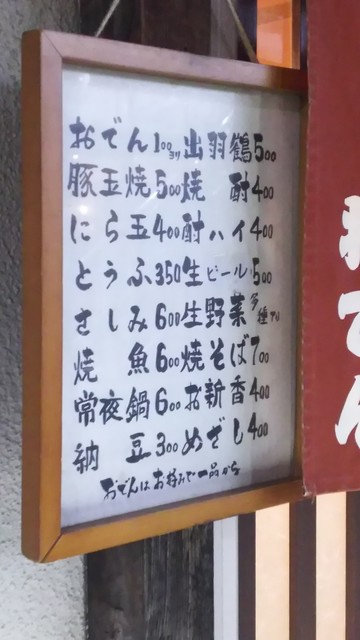 おでん100ヨリ 出羽鶴500
豚玉焼500 焼酎400
にら玉400 酎ハイ400
とうふ350 生ビール500
さしみ600 生野菜多種アリ
焼魚600 焼そば700
常夜鍋600 お新香400
納豆300 めざし400
おでんはお好みで一品から
おでん